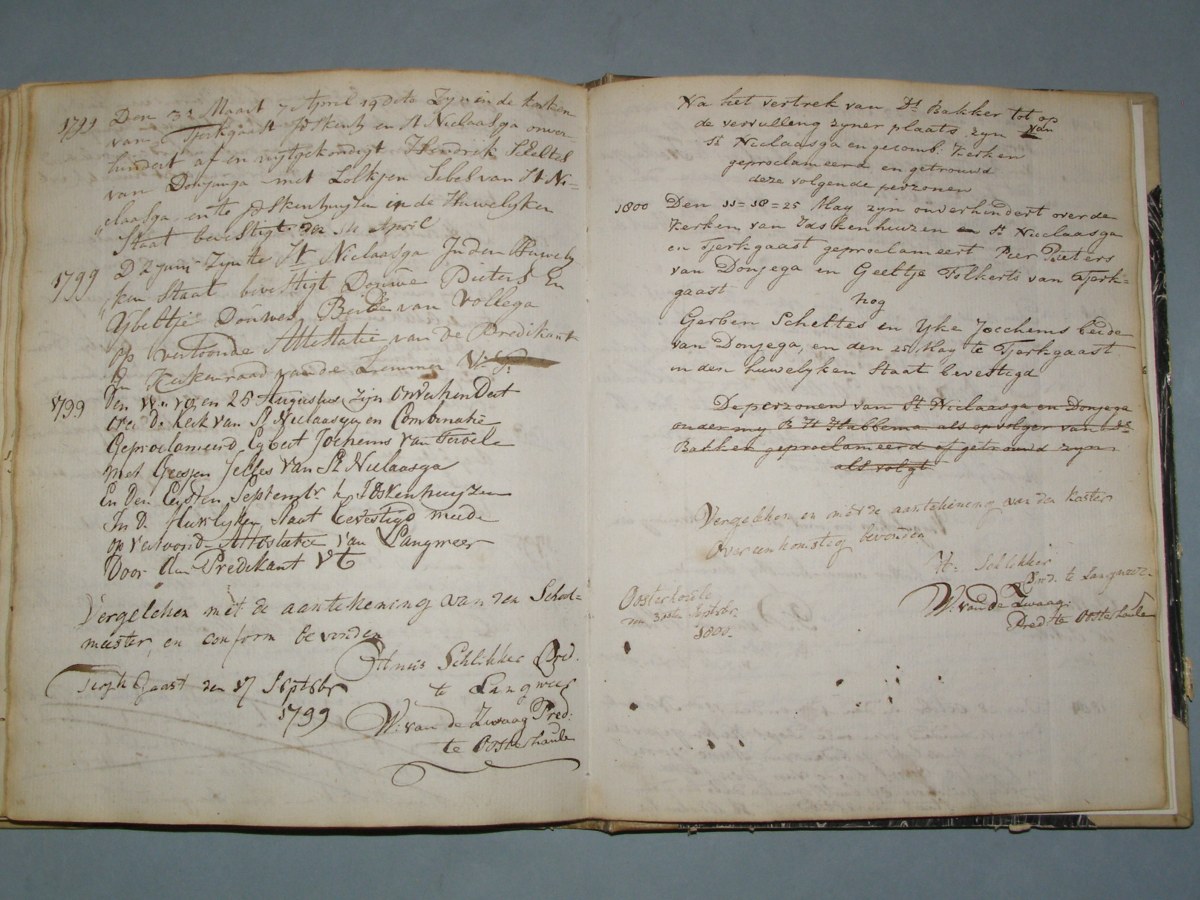 1799 Den 31 Maart 7 April 14 dito Zyn in de kerken
van Tjerkgaast Idskenhuiz en St Niclaasga onver
hindert af en uytgekondigt Hendrik Sieltes
van Donjinga met Lolkjen Sibels van St Ni=
claasga, en te Idskenhuyzen in de Huwelyken
Staat bevestigt den 14 April
1799 D 2 Juni Zyn te St Niclaasga In den Huwely
ken Staat bevestigt Douwe Pieters En
Ybeltje Douwes Beide van Vollega
op vertoonde Attestatie van de Predikant
En Kerkenraad van de Lemmer
1799 Den 11 en 25 Augustus zijn onverhendert
in de kerk van St Niclaasga en Combinatie
Geproclameerd Egbert Jochems van
met Jelles van St Niclaasga
En den Eersten Septembr te Idskenhuijzen
In D. Huwlijken Staat bevestigd mede
op vertoond Attestatie van Langweer
Voor den Predikant VT
Vergeleken met de aantekening van den School=
meester, en conform bevonden
Schlikker Pred.
Tjerk Gaast den 17 Septebr
te Langweer
1799
W. van de Zwaag Pred:
te Oosterhaule
Na het vertrek van Ds Bakker tot op
de vervulling zyner plaats zyn van
St Niclaasga en gecomb: Kerken
geproclameerd en getrouwd
deze volgende perzonen
1800 Den 11=18=25 May zyn onverhindert over de
Kerken van Idskenhuizen en St Niclaasga
en Tjerkgaast geproclameert Peer Pieters
van Donjega en Geeltje Folkerts van Tjerk=
gaast
nog
Gerben Scheltes en Yke Jocchems beide
van Donjega, en den 25 May te Tjerkgaast
in den huwelyken Staat bevestigd
De perzonen van St Niclaasga en Donjega
onder my B. H. als opvolger van Ds
Bakker geproclameerd of getrouwd zyn
als volgt
Vergeleken en met de aantekening van den Koster
Overeenkomstig bevonden
Schlikker
Pred. te Langweer.
Oosterhoule
den Septebr.
1800.
W. van de Zwaag
Pred te Oosterhaule